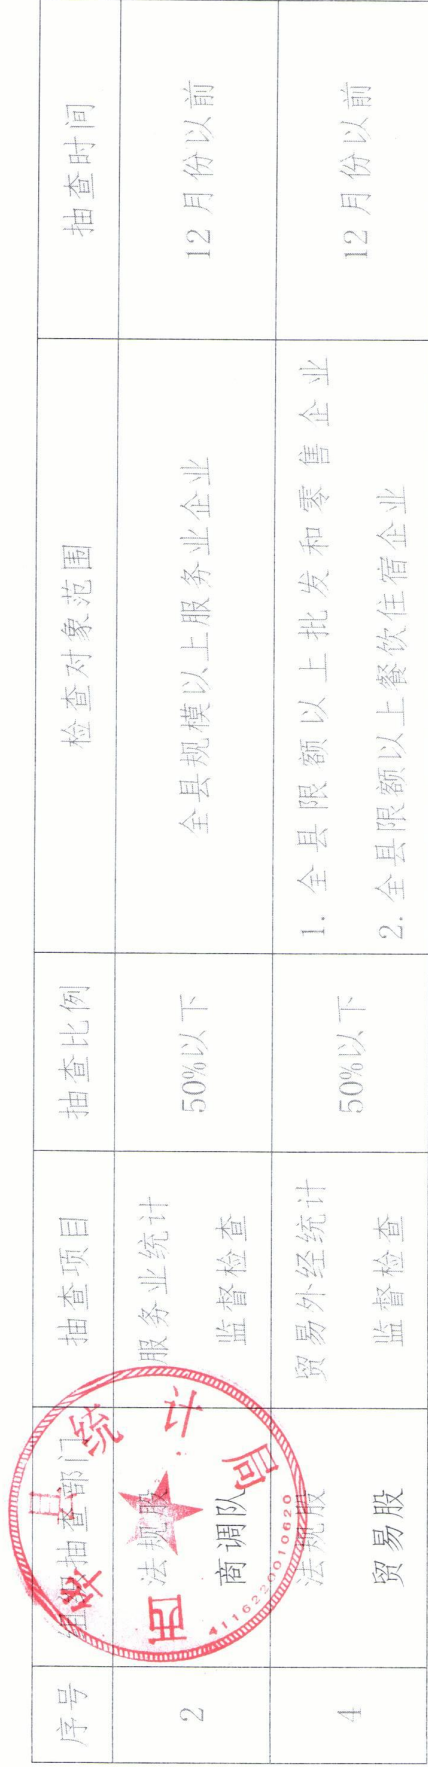 序号 组织抽查部门 抽查项目 抽查比例 检查对象范围 抽查时间
2 法规股 商调队 服务业统计 监督检查 50%以下 全县规模以上服务业企业 12 月份以前
4 法规股 贸易股 贸易外经统计 监督检查 50%以下 1. 全县限额以上批发和零售企业 2. 全县限额以上餐饮住宿企业 12 月份以前
西华县统计局
4116220010620